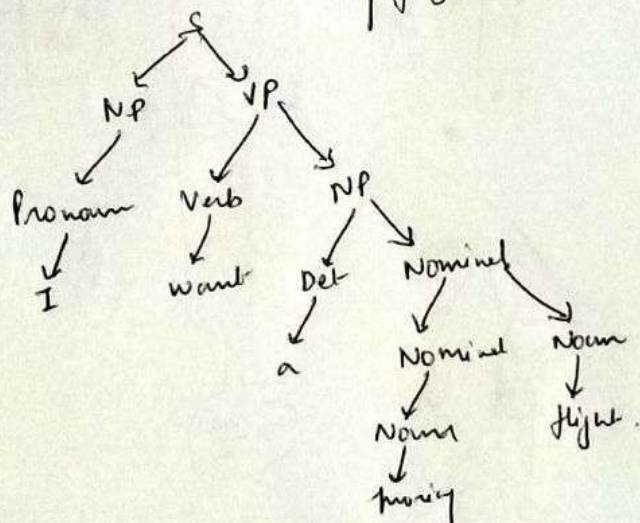 S
NP VP
Pronoun Verb NP
I want Det Nominal
a Nominal Noun
Noun flight.